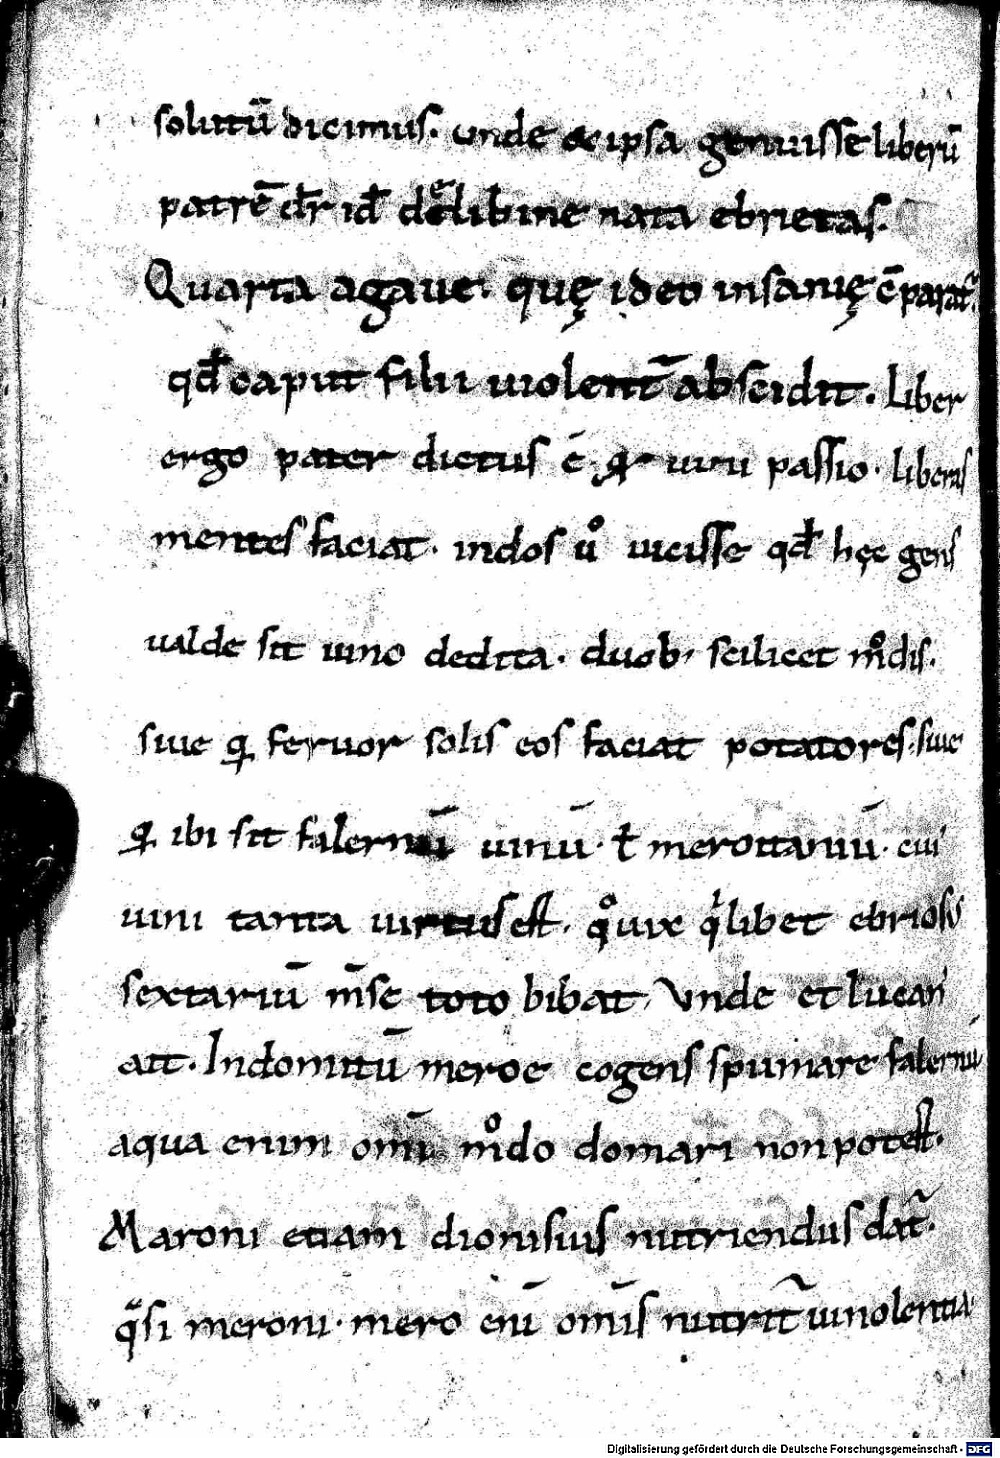 solutū dicimus. unde & ipsa genuisse liberū
patrē dr̄ id̄ de libine nata ebrietas.
Quarta agaue. quę ideo insanię cōparat̃.
qd̄ caput filii uiolent̄ abscidit. Liber
ergo pater dictus ē. qꝛ uini passio. liberas
mentes faciat. indos ůͦ uicisse qd̄ hęc gens
ualde sit uino dedita. duob; scilicet mͦdis.
siue qꝛ feruor solis eos faciat potatores. siue
qꝛ ibi sit falernū uinū. ł meroitanū. cui'
uini tanta uirtus est. qͦ uix qͥlibet ebriosus
sextariū m̄se toto bibat. Vnde et lucan'
ait. Indomitū meroe cogens spumare falernū
aqua enim om̄i mͦdo domari non potest.
Maroni etiam dionisius nutriendus dat̃.
qͣsi meroni. mero enī om̄is nutrit̃ uinolentia
Digitalisierung gefördert durch die Deutsche Forschungsgemeinschaft - DFG